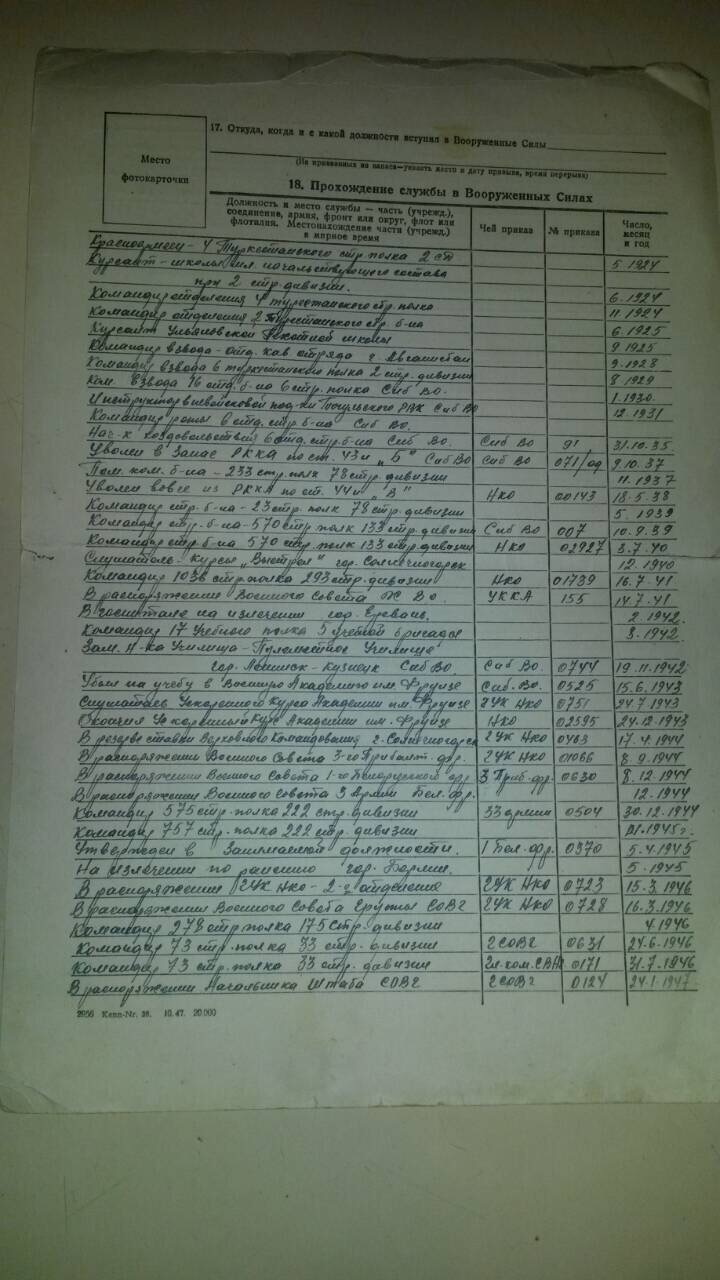 Место
фотокарточки
17. Откуда, когда и с какой должности вступил в Вооруженные Силы
(Из призванных из запаса—указать место и дату призыва, время перерыва)
18. Прохождение службы в Вооруженных Силах
Должность и место службы — часть (учрежд.), соединение, армия, фронт или округ, флот или флотилия. Местонахождение части (учрежд.) в мирное время Чей приказ № приказа Число, месяц и год
Красноармеец - 4 Туркестанского стр. полка 2 сд
Курсант - школы мл. начальствующего состава 5.1924
при 2 стр. дивизии.
Командир отделения 4 туркестанского стр. полка 6.1924
Командир отделения 2 Туркестанского стр. б-на 11.1924
Курсант Ульяновской школы 6.1925
Командир взвода - отд. кав отряда г. 9.1928
Командир взвода 6 туркестанского полка 2 стр. дивизии 8 1929
Ком. взвода 16 отд. б-на 6 стр. полка Сиб Во. 1.1930.
Инструктор вневойсковой под-ки РИК Сиб Во 12.1931
Командир роты 6 отд. стр. б-на Сиб Во.
Нач-к 6 отд. стр. б-на Сиб Во. Сиб Во 91 31.10.35
Уволен в Запас РККА по ст. 43 и „Б" Сиб Во Сиб Во 071/од 9.10.37
Пом. ком. б-на - 233 стр. полк 78 стр. дивизии 11.1937
Уволен вовсе из РККА по ст. 44 и „В" Нко 00143 18.5.38
Командир стр. б-на - 23 стр. полк 78 стр. дивизии 5.1939
Командир стр. б-на - 570 стр. полк 133 стр. дивизии Сиб Во 007 10.9.39
Командир стр. б-на 570 стр. полк 133 стр. дивизии Нко 02927 3.7.40
Слушатель - курсы „Выстрел" гор. Солнечногорск 12.1940
Командир 1036 стр. полка 293 стр. дивизии Нко 01739 16.7.41
В распоряжение Военного Совета Во. УККА 155 14.7.41
В госпитале на излечении гор. Ереван. 2.1942.
Командир 17 Учебного полка 5 учебной бригады 8.1942
Зам. Н-ка Училища - Пулеметное Училище
гор. Ленинск-кузнецк Сиб Во. Сиб Во. 0744 19.11.1942
Убыл на учебу в Военную Академию им. Фрунзе Сиб. Во. 0525 15.6.1943
Слушатель Ускоренного Курса Академии им. Фрунзе ГУК НКО 0751 24.7.1943
Окончил Ускоренный Курс Академии им. Фрунзе НКО 02595 24.12.1943
В резерве ставки Верховного Командования г. Солнечногорск ГУК НКО 0463 17.4.1944
В распоряжении Военного Совета 3-го Прибалт. фр. ГУК НКО 01066 8.9.1944
В распоряжении Военного Совета 1-го фр. 3 Приб. фр. 0630 8.12.1944
В распоряжении Военного Совета 3 Армии Бел. фр. 12.1944
Командир 575 стр. полка 222 стр. дивизии 33 армии 0504 30.12.1944
Командир 757 стр. полка 222 стр. дивизии 01.1945 г.
Утвержден в Занимаемой должности. 1 Бел. фр. 0370 5.4.1945
На излечении по ранению гор. Берлин. 5.1945
В распоряжении ГУК НКО - 2-е отделение ГУК НКО 0723 15.3.1946
В распоряжении Военного Совета Группы СОВГ ГУК НКО 0728 16.3.1946
Командир 278 стр. полка 175 стр. дивизии 4.1946
Командир 73 стр. полка 33 стр. дивизии ГСОВГ 0631 24.6.1946
Командир 73 стр. полка 33 стр. дивизии 0171 31.7.1946
В распоряжении Начальника Штаба СОВГ ГСОВГ 0124 24.1.1947
2956 Кепп-Nr. 38. 10.47. 20 000